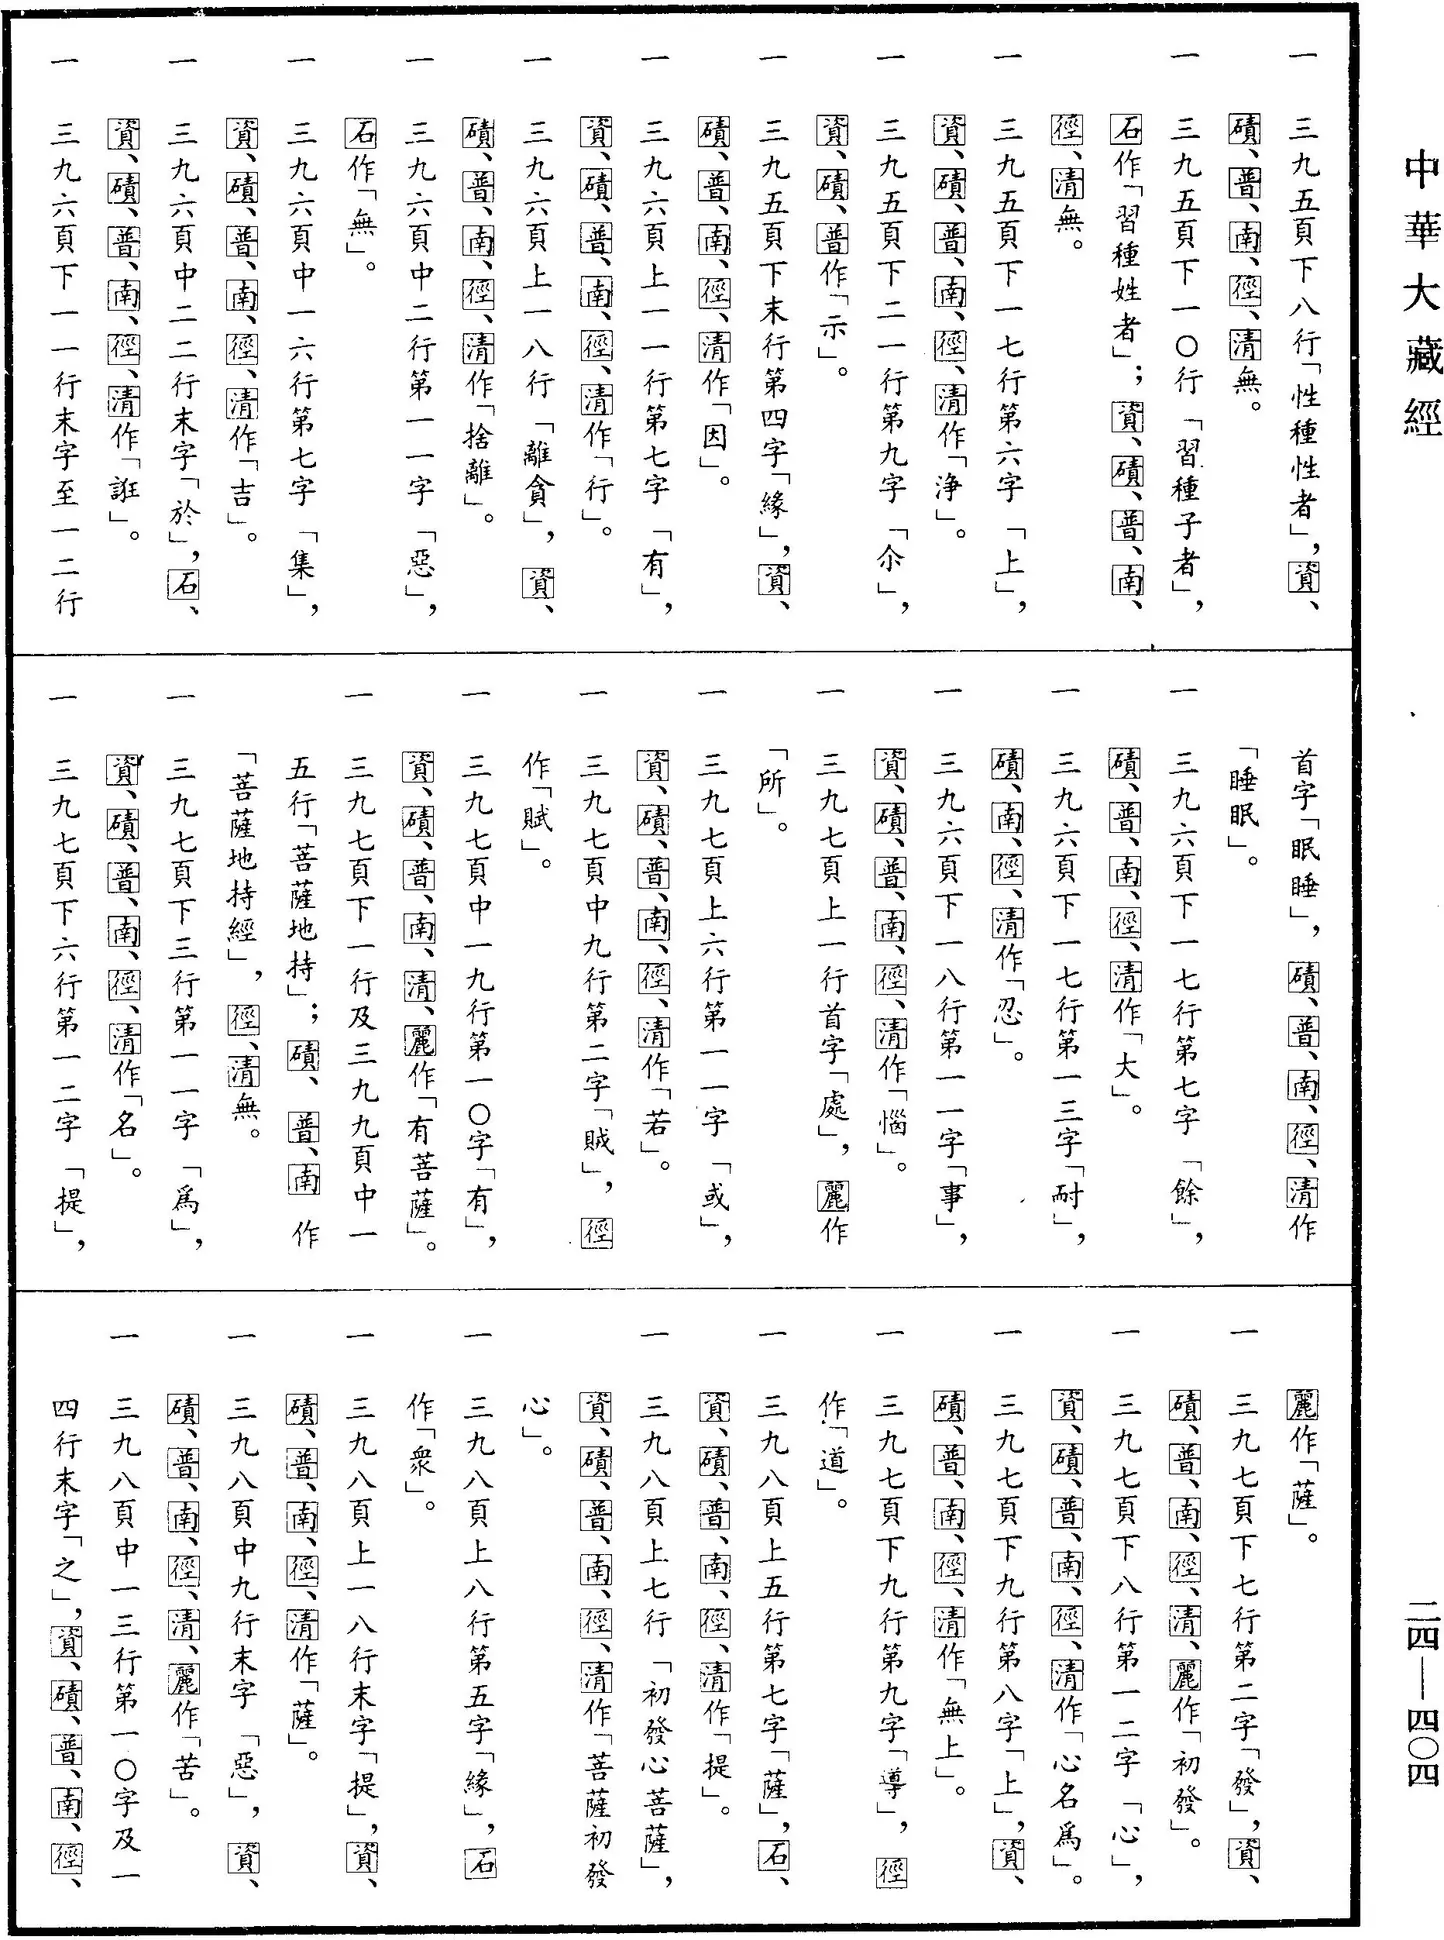 中華大藏經
一　三九五頁下八行「性種性者」，資、
磧、普、南、徑、清無。
一　三九五頁下一〇行「習種子者」，
石作「習種姓者」；資、磧、普、南、
徑、清無。
一　三九五頁下一七行第六字「上」，
資、磧、普、南、徑、清作「浄」。
一　三九五頁下二一行第九字「尒」，
資、磧、普作「示」。
一　三九五頁下末行第四字「緣」，資、
磧、普、南、徑、清作「因」。
一　三九六頁上一一行第七字「有」，
資、磧、普、南、徑、清作「行」。
一　三九六頁上一八行「離貪」，資、
磧、普、南、徑、清作「捨離」。
一　三九六頁中二行第一一字「惡」，
石作「無」。
一　三九六頁中一六行第七字「集」，
資、磧、普、南、徑、清作「吉」。
一　三九六頁中二二行末字「於」，石、
資、磧、普、南、徑、清作「誑」。
一　三九六頁下一一行末字至一二行
首字「眠睡」，磧、普、南、徑、清作
「睡眠」。
一　三九六頁下一七行第七字「餘」，
磧、普、南、徑、清作「大」。
一　三九六頁下一七行第一三字「耐」，
磧、南、徑、清作「忍」。
一　三九六頁下一八行第一一字「事」，
資、磧、普、南、徑、清作「惱」。
一　三九七頁上一行首字「處」，麗作
「所」。
一　三九七頁上六行第一一字「或」，
資、磧、普、南、徑、清作「若」。
一　三九七頁中九行第二字「賊」，徑
作「賦」。
一　三九七頁中一九行第一〇字「有」，
資、磧、普、南、清、麗作「有菩薩」。
一　三九七頁下一行及三九九頁中一
五行「菩薩地持」；磧、普、南作
「菩薩地持經」，徑、清無。
一　三九七頁下三行第一一字「爲」，
資、磧、普、南、徑、清作「名」。
一　三九七頁下六行第一二字「提」，
麗作「薩」。
一　三九七頁下七行第二字「發」，資、
磧、普、南、徑、清、麗作「初發」。
一　三九七頁下八行第一二字「心」，
資、磧、普、南、徑、清作「心名爲」。
一　三九七頁下九行第八字「上」，資、
磧、普、南、徑、清作「無上」。
一　三九七頁下九行第九字「導」，徑
作「道」。
一　三九八頁上五行第七字「薩」，石、
資、磧、普、南、徑、清作「提」。
一　三九八頁上七行「初發心菩薩」，
資、磧、普、南、徑、清作「菩薩初發
心」。
一　三九八頁上八行第五字「緣」，石
作「衆」。
一　三九八頁上一八行末字「提」，資、
磧、普、南、徑、清作「薩」。
一　三九八頁中九行末字「惡」，資、
磧、普、南、徑、清、麗作「苦」。
一　三九八頁中一三行第一〇字及一
四行末字「之」，資、磧、普、南、徑、
二四—四〇四